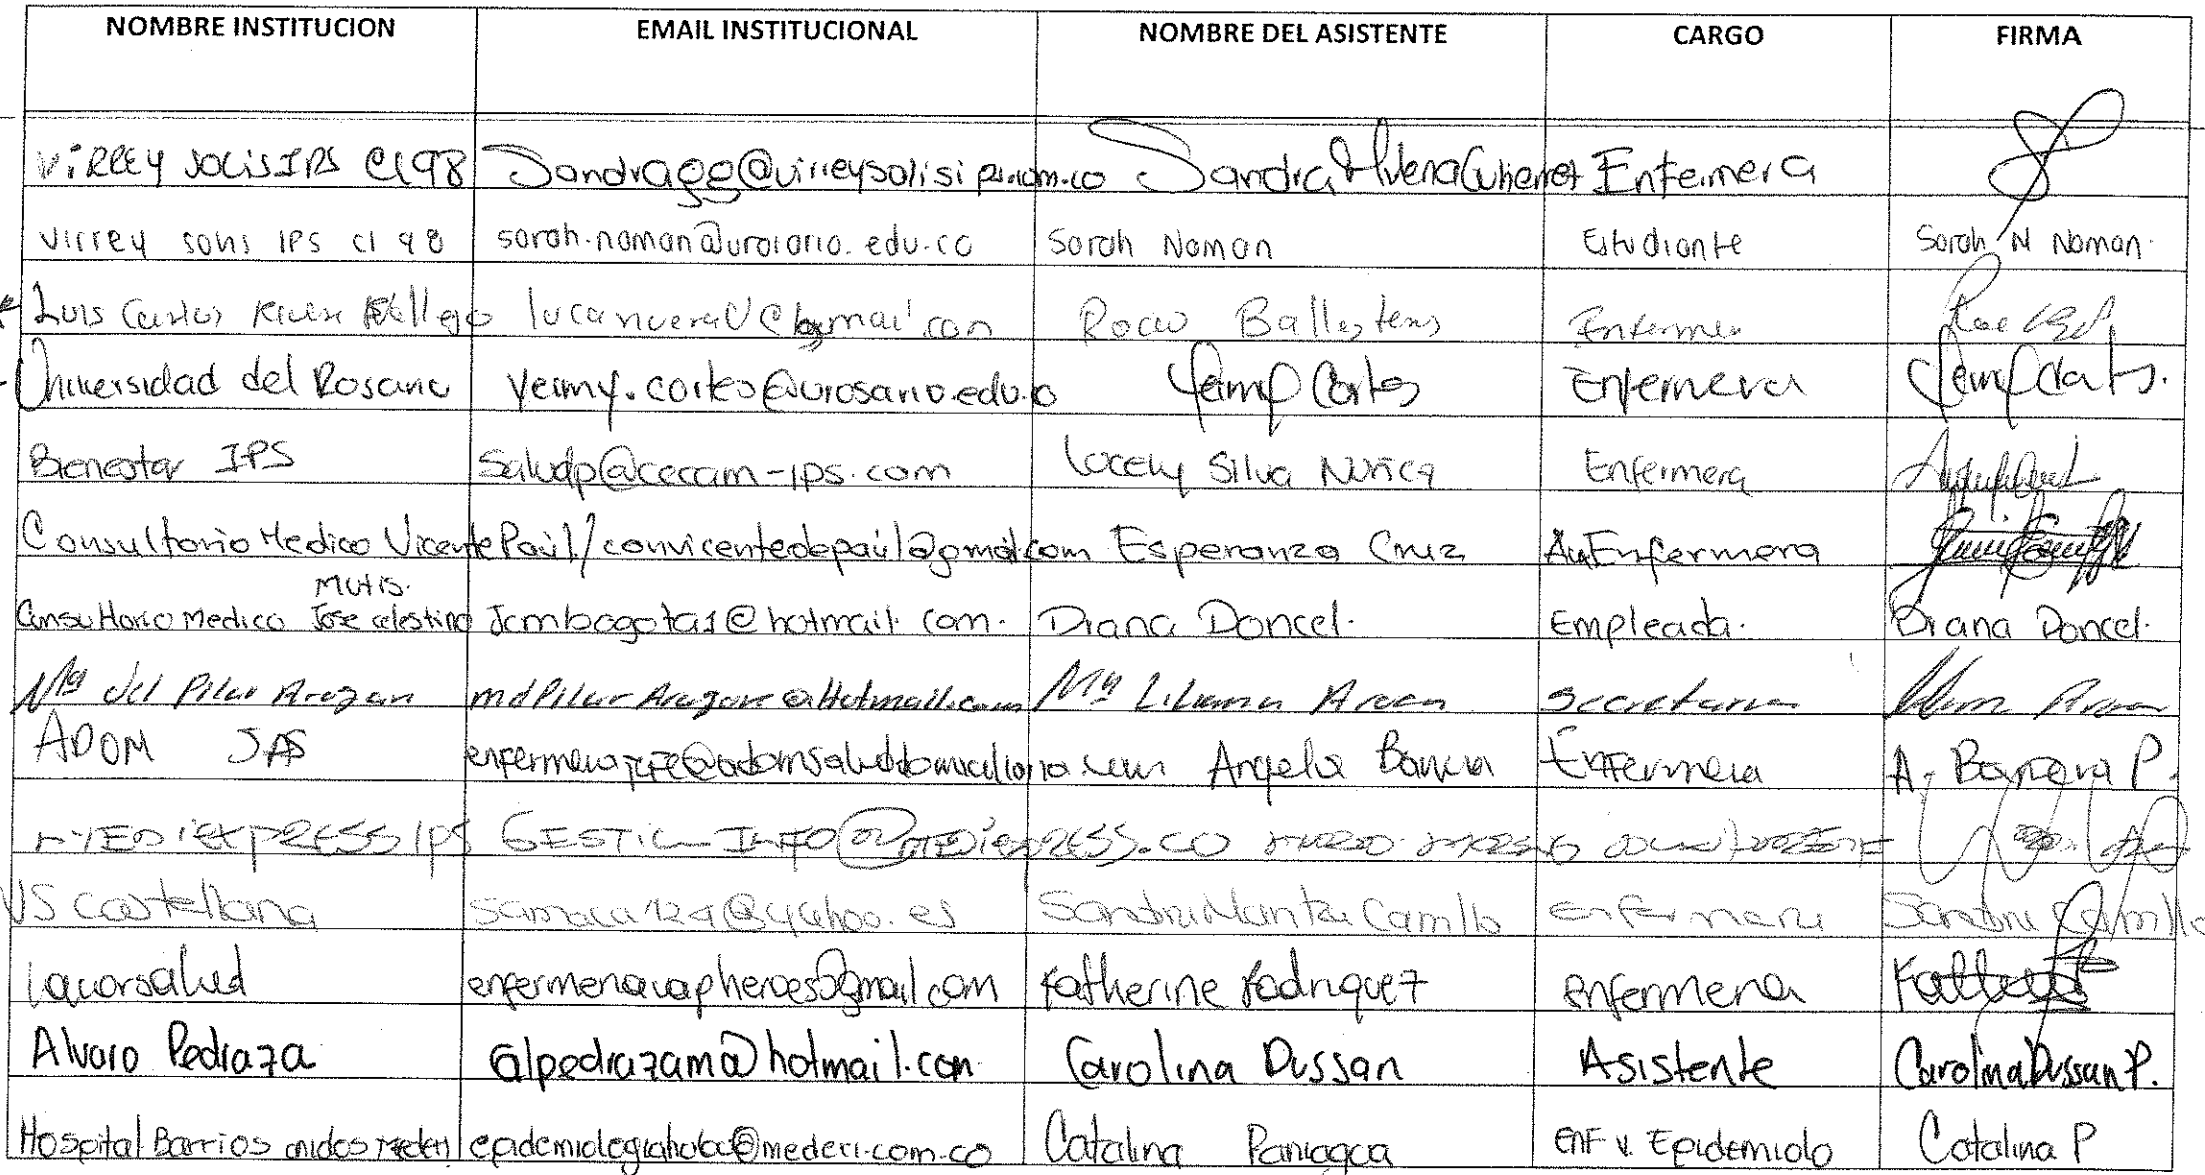 NOMBRE INSTITUCION EMAIL INSTITUCIONAL NOMBRE DEL ASISTENTE CARGO FIRMA
VIRREY SOLIS IPS Cl 98 Sandragg@virreysolisips.com.co Sandra Milena Gutierrez Enfermera
Virrey solis IPS cl 98 sarah.noman@urosario.edu.co Sarah Noman Estudiante Sarah N Noman.
Luis Carlos Rocio Ballesteros Enfermera
Universidad del Rosario yeimy.cortes@urosario.edu.co Yeimy Cortes Enfermera
Bienestar IPS Saludp@cecam-ips.com Silva Nuñez Enfermera
Consultorio Medico Vicente Paúl / convicentedepaul@gmail.com Esperanza Cruz Aux Enfermera
Mutis.
Consultorio Medico Jose celestino Jcmbogota1@hotmail.com. Diana Doncel. Empleada. Diana Doncel.
Ma del Pilar Aragon mdPilarAragon@Hotmail.com Ma Liliana Secretaria
ADOM SAS enfermerajefe@adomsaluddomiciliaria.com Angela Barrera Enfermera A. Barrera P.
MEDIEXPRESS IPS
VS Castellana samaca124@yahoo.es Sandra Maritza Carrillo enfermera Sandra Carrillo
enfermeriavapheroes@gmail.com Katherine Rodriguez enfermera
Alvaro Pedraza alpedrazam@hotmail.com Carolina Dussan Asistente Carolina Dussan P.
Hospital Barrios unidos Mederi @mederi.com.co Catalina Paniagua ENF V. Epidemiolo Catalina P